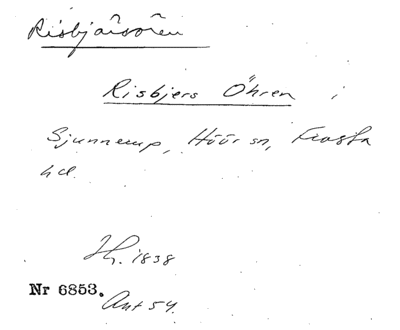 Risbjärsören
Risbjers Öhren i
Sjunnerup, Höör sn, Frosta
hd.
Hr. 1838
Nr 6853.
Ant 54.